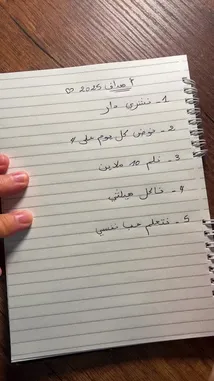 أهداف 2025 ♡
1- نشري دار
2- نوض كل يوم على 4
3- نلم 10 ملاين
4- ناكل هيلثي
5- نتعلم حب نفسي